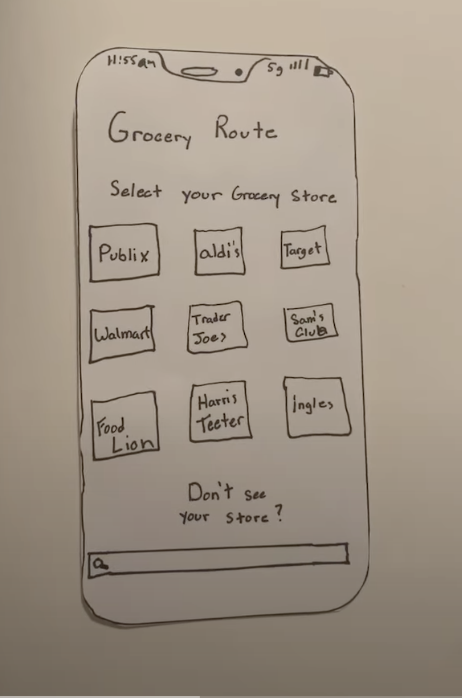 11:55am 5g
Grocery Route
Select your Grocery Store
Publix aldi's Target
Walmart Trader Joes Sam's Club
Food Lion Harris Teeter Ingles
Don't see
your store?